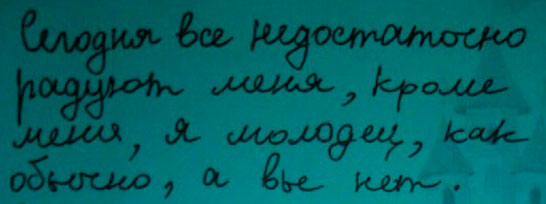 Сегодня все недостаточно
радуют меня, кроме
меня, я молодец, как
обычно, а вые нет.